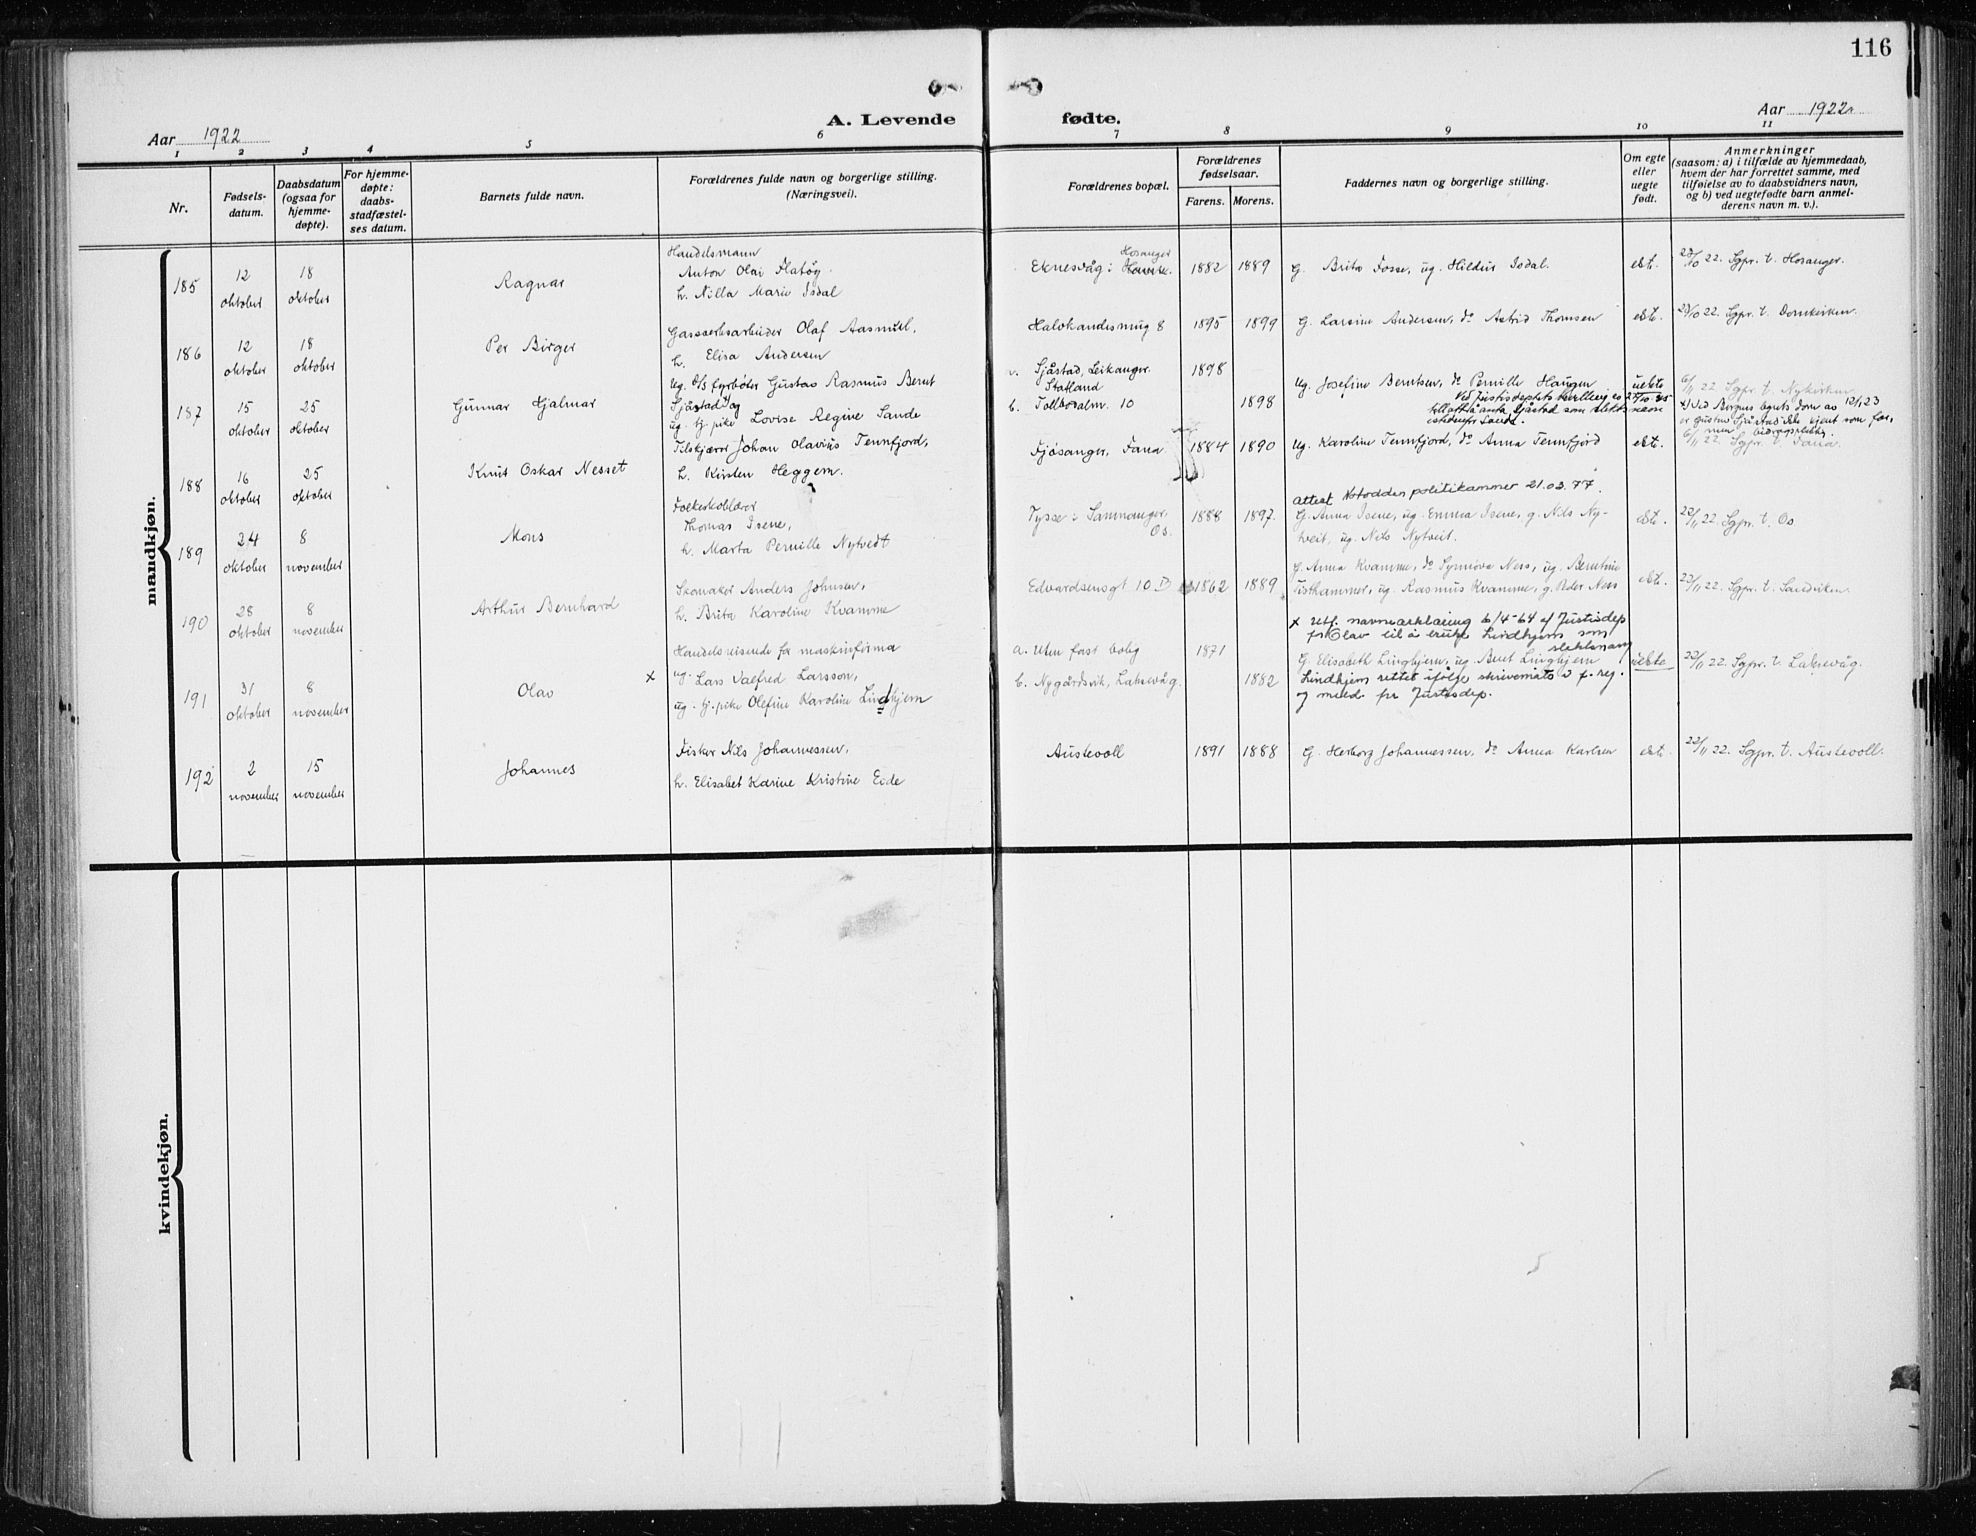 116
Aar 1922
A. Levende fødte.
Aar 1922
1 2 3 4 5 6 7 8 9 10 11
Nr.
Fødsels-
datum.
Daabsdatum
(ogsaa for
hjemme-
døpte).
For hjemme-
døpte:
daabs-
stadfæstel-
ses datum.
Barnets fulde navn.
Forældrenes fulde navn og borgerlige stilling.
(Næringsvei).
Forældrenes bopæl.
Forældrenes
fødselsaar.
Farens. Morens.
Faddernes navn og borgerlige stilling.
Om egte
eller
uegte
født.
Anmerkninger
(saasom: a) i tilfælde av hjemmedaab,
hvem der har forrettet samme, med
tilføielse av to daabsvidners navn,
og b) ved uegtefødte barn anmel-
derens navn m. v.).
mandkjøn.
185
12
oktober
18
oktober
Ragnar
Handelsmann
Anton Olai Flatøy
h. Nilla Marie Isdal
Hosanger
Eknesvåg i
1882 1889
G. Brita Fosse, ug. Hildur Isdal.
ekt.
23/10 22. Sgpr. t. Hosanger.
186
12
oktober
18
oktober
Per Birger
Gassverksarbeider Olaf Aasmul,
h. Elisa Andersen
Halvkandesmug 8
1895 1899
G. Larsine Andersen, do Astrid Thomsen
ekt.
23/10 22. Sgpr. t. Domkirken.
187
15
oktober
25
oktober
Gunnar Hjalmar
Ug. d/s fyrbøter Gustav Rasmus Bernt
Sjåstad og
ug. tj. pike Lovise Regine Sande
Sjåstad, Leikanger.
Statland
b. Tollbodalm. 10
1898
1898
Ug. Josefine Berntsen, do Pernille Haugen
Ved Justisdeptets bevilling av 27/10-45
till. å anta Sjåstad som slektsnavn
istedenfor Sande.
uekte
6/11 22 Sgpr. t. Nykirken
x) Ved Bergens byrets dom av 12/1 23
er Gustav Sjåstad ikke kjent som far,
men bidragspliktig.
188
16
oktober
25
oktober
Knut Oskar Nesset
Tilskjærer Johan Olavius Tennfjord,
h. Kirsten Heggem.
Fjøsanger, Fana
1884 1890
Ug. Karoline Tennfjord, do Anna Tennfjord
ekt.
6/11 22. Sgpr. t. Fana.
Attest Notodden politikammer 21.03.77.
189
24
oktober
8
november
Mons
Folkeskolelærer
Thomas Isene,
h. Marta Pernille Nytvedt
Tysse i Samnanger
Os.
1888 1897.
G. Anna Isene, ug. Emma Isene, g. Nils Ny-
tveit, ug. Nils Nytveit.
ekt.
22/11 22. Sgpr. t. Os
190
28
oktober
8
november
Arthur Bernhard
Skomaker Anders Johnsen,
h. Brita Karoline Kvamme
Edvardsensgt 10 D
1862 1889
G. Anna Kvamme, do Synnøva Ness, ug. Berntine
Fisthammer, ug. Rasmus Kvamme, g. Peder Ness
ekt.
22/11 22. Sgpr. t. Sandviken
x Utf. navneerklæring 6/4-64 af Justisdep
fr Olav til å bruke Lindhjem som
slektsnavn
191
31
oktober
8
november
Olav
x
Handelsreisende for maskinfirma
ug. Lars Valfred Larsson,
ug. tj. pike Olefine Karoline Lindhjem
a. Uten fast bolig
b. Nygårdsvik, Laksevåg.
1871
1882
G. Elisabeth Linghjem, ug. Beret Linghjem
Lindhjem rettet ifølge skrivemåte i f. reg.
og meld. fr Justisdep.
uekte
22/11 22. Sgpr. t. Laksevåg.
192
2
november
15
november
Johannes
Fisker Nils Johannessen,
h. Elisabet Karine Kristine Eide
Austevoll
1891 1888
G. Herborg Johannessen, do Anna Karlsen
ekt.
22/11 22. Sgpr. t. Austevoll.
kvindekjøn.